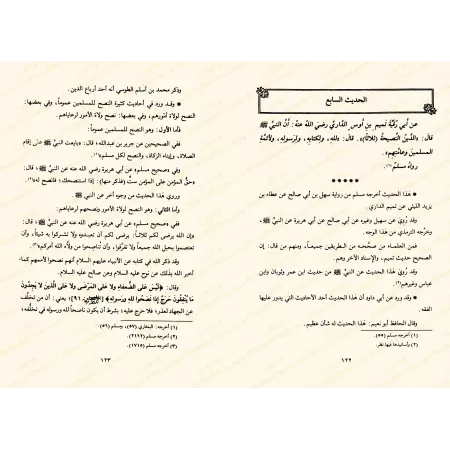 الحديث السابع
عن أبي رُقَيَّة تميم بن أوس الداري رضي الله عنه: أنَّ النبيَّ ﷺ
قال: «الدِّينُ النَّصيحةُ (ثلاثًا)». قال: «للهِ، ولكتابِهِ، ولرسولِهِ، ولأئمَّةِ
المسلمينَ وعامَّتِهِم»
رواهُ مسلم(١).
* * * * *
● هذا الحديث أخرجه مسلم من رواية سهيل بن أبي صالح عن عطاء بن
يزيد الليثي عن تميم الداري.
وقد رُوي عن سهيل وغيره عن أبي صالح عن أبي هريرة عن النبي ﷺ
وخرَّجه الترمذي من هذا الوجه.
فمن العلماء من صحَّحه من الطريقين جميعاً، ومنهم من قال: إن
الصحيح حديث تميم، والإسناد الآخر وهم.
وقد رُويَ هذا الحديث عن النبيِّ ﷺ من حديث ابن عمر وثوبان وابن
عباس وغيرهم(٢).
● وقد ورد عن أبي داود أن هذا الحديث أحد الأحاديث التي يدور عليها
الفقه.
وقال الحافظ أبو نعيم: هذا الحديث له شأن عظيم.
(١) أخرجه مسلم (٥٥).
(٢) وأسانيدها فيها نظر.
١٢٢
وذكر محمد بن أسلم الطوسي أنه أحد أرباع الدين.
● وقد ورد في أحاديث كثيرة النصح للمسلمين عموماً، وفي بعضها:
النصح لولاة أمورهم، وفي بعضها: نصح ولاة الأمور لرعاياهم.
فأما الأول: وهو النصح للمسلمين عموماً:
ففي الصحيحين عن جرير بن عبدالله: «بايعت النبيَّ ﷺ على إقام
الصلاة، وإيتاء الزكاة، والنصح لكل مسلم»(١).
وفي «صحيح مسلم» عن أبي هريرة رضي الله عنه عن النبيِّ ﷺ؛ قال:
«حق المؤمن على المؤمن ست (فذكر منها): إذا استنصحك؛ فانصح له»(٢).
ورُوي هذا الحديث من وجوه أخر عن النبي ﷺ.
وأما الثاني: وهو النصح لولاة الأمور ونصحهم لرعاياهم:
ففي «صحيح مسلم» عن أبي هريرة عن النبي ﷺ؛ قال:
«إن الله يرضى لكم ثلاثاً: يرضى لكم أن تعبدوه ولا تشركوا به شيئاً، وأن
تعتصموا بحبل الله جميعاً ولا تفرَّقوا، وأن تُناصحوا من ولَّاه الله أمركم»(٣).
وقد ذكر الله في كتابه عن الأنبياء عليهم السلام أنهم نصحوا لأممهم كما
أخبر الله بذلك عن نوح عليه السلام وعن صالح عليه السلام.
وقال: ﴿لَيْسَ عَلَى الضُّعَفَاءِ وَلَا عَلَى الْمَرْضَى وَلَا عَلَى الَّذِينَ لَا يَجِدُونَ
مَا يُنْفِقُونَ حَرَجٌ إِذَا نَصَحُوا لِلَّهِ وَرَسُولِهِ﴾ ٩١]؛ يعني: أن من تخلَّف
عن الجهاد لعذر؛ فلا حرج عليه؛ بشرط أن يكون ناصحاً لله ورسوله في تخلُّفه؛
(١) أخرجه: البخاري (٥٧)، ومسلم (٥٦).
(٢) أخرجه مسلم (٢١٦٢).
(٣) أخرجه مسلم (١٧١٥).
١٢٣